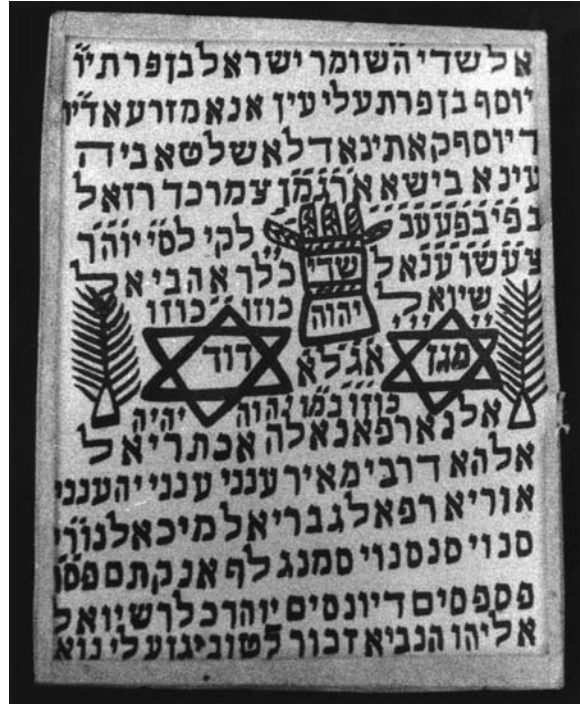 אל שדי השומר ישראל בן פרת יו
יוסף בן פרת עלי עין אנא מזרעא דיו
דיוסף קאתינא דלא שלטא ביה
עינא בישא ארגמן צמרכד רזאל
בפיבפעעב לקי לסי יוהך
צעשו ענאל שדי כלך אהביאל
שיואל יהוה כוזו כוזו
מגן דוד
אגלא
כוזו במו יהוה יהיה
אל נא רפא נא לה אכתריאל
אלהא דרבי מאיר ענני ענני יה ענני
אוריא רפאל גבריאל מיכאל נורי
סנוי סנסנוי סמנגלף אנקתם פסת
פספסים דיונסים יוהך כלך שיואל
אליהו הנביא זכור לטוב יגן עלי